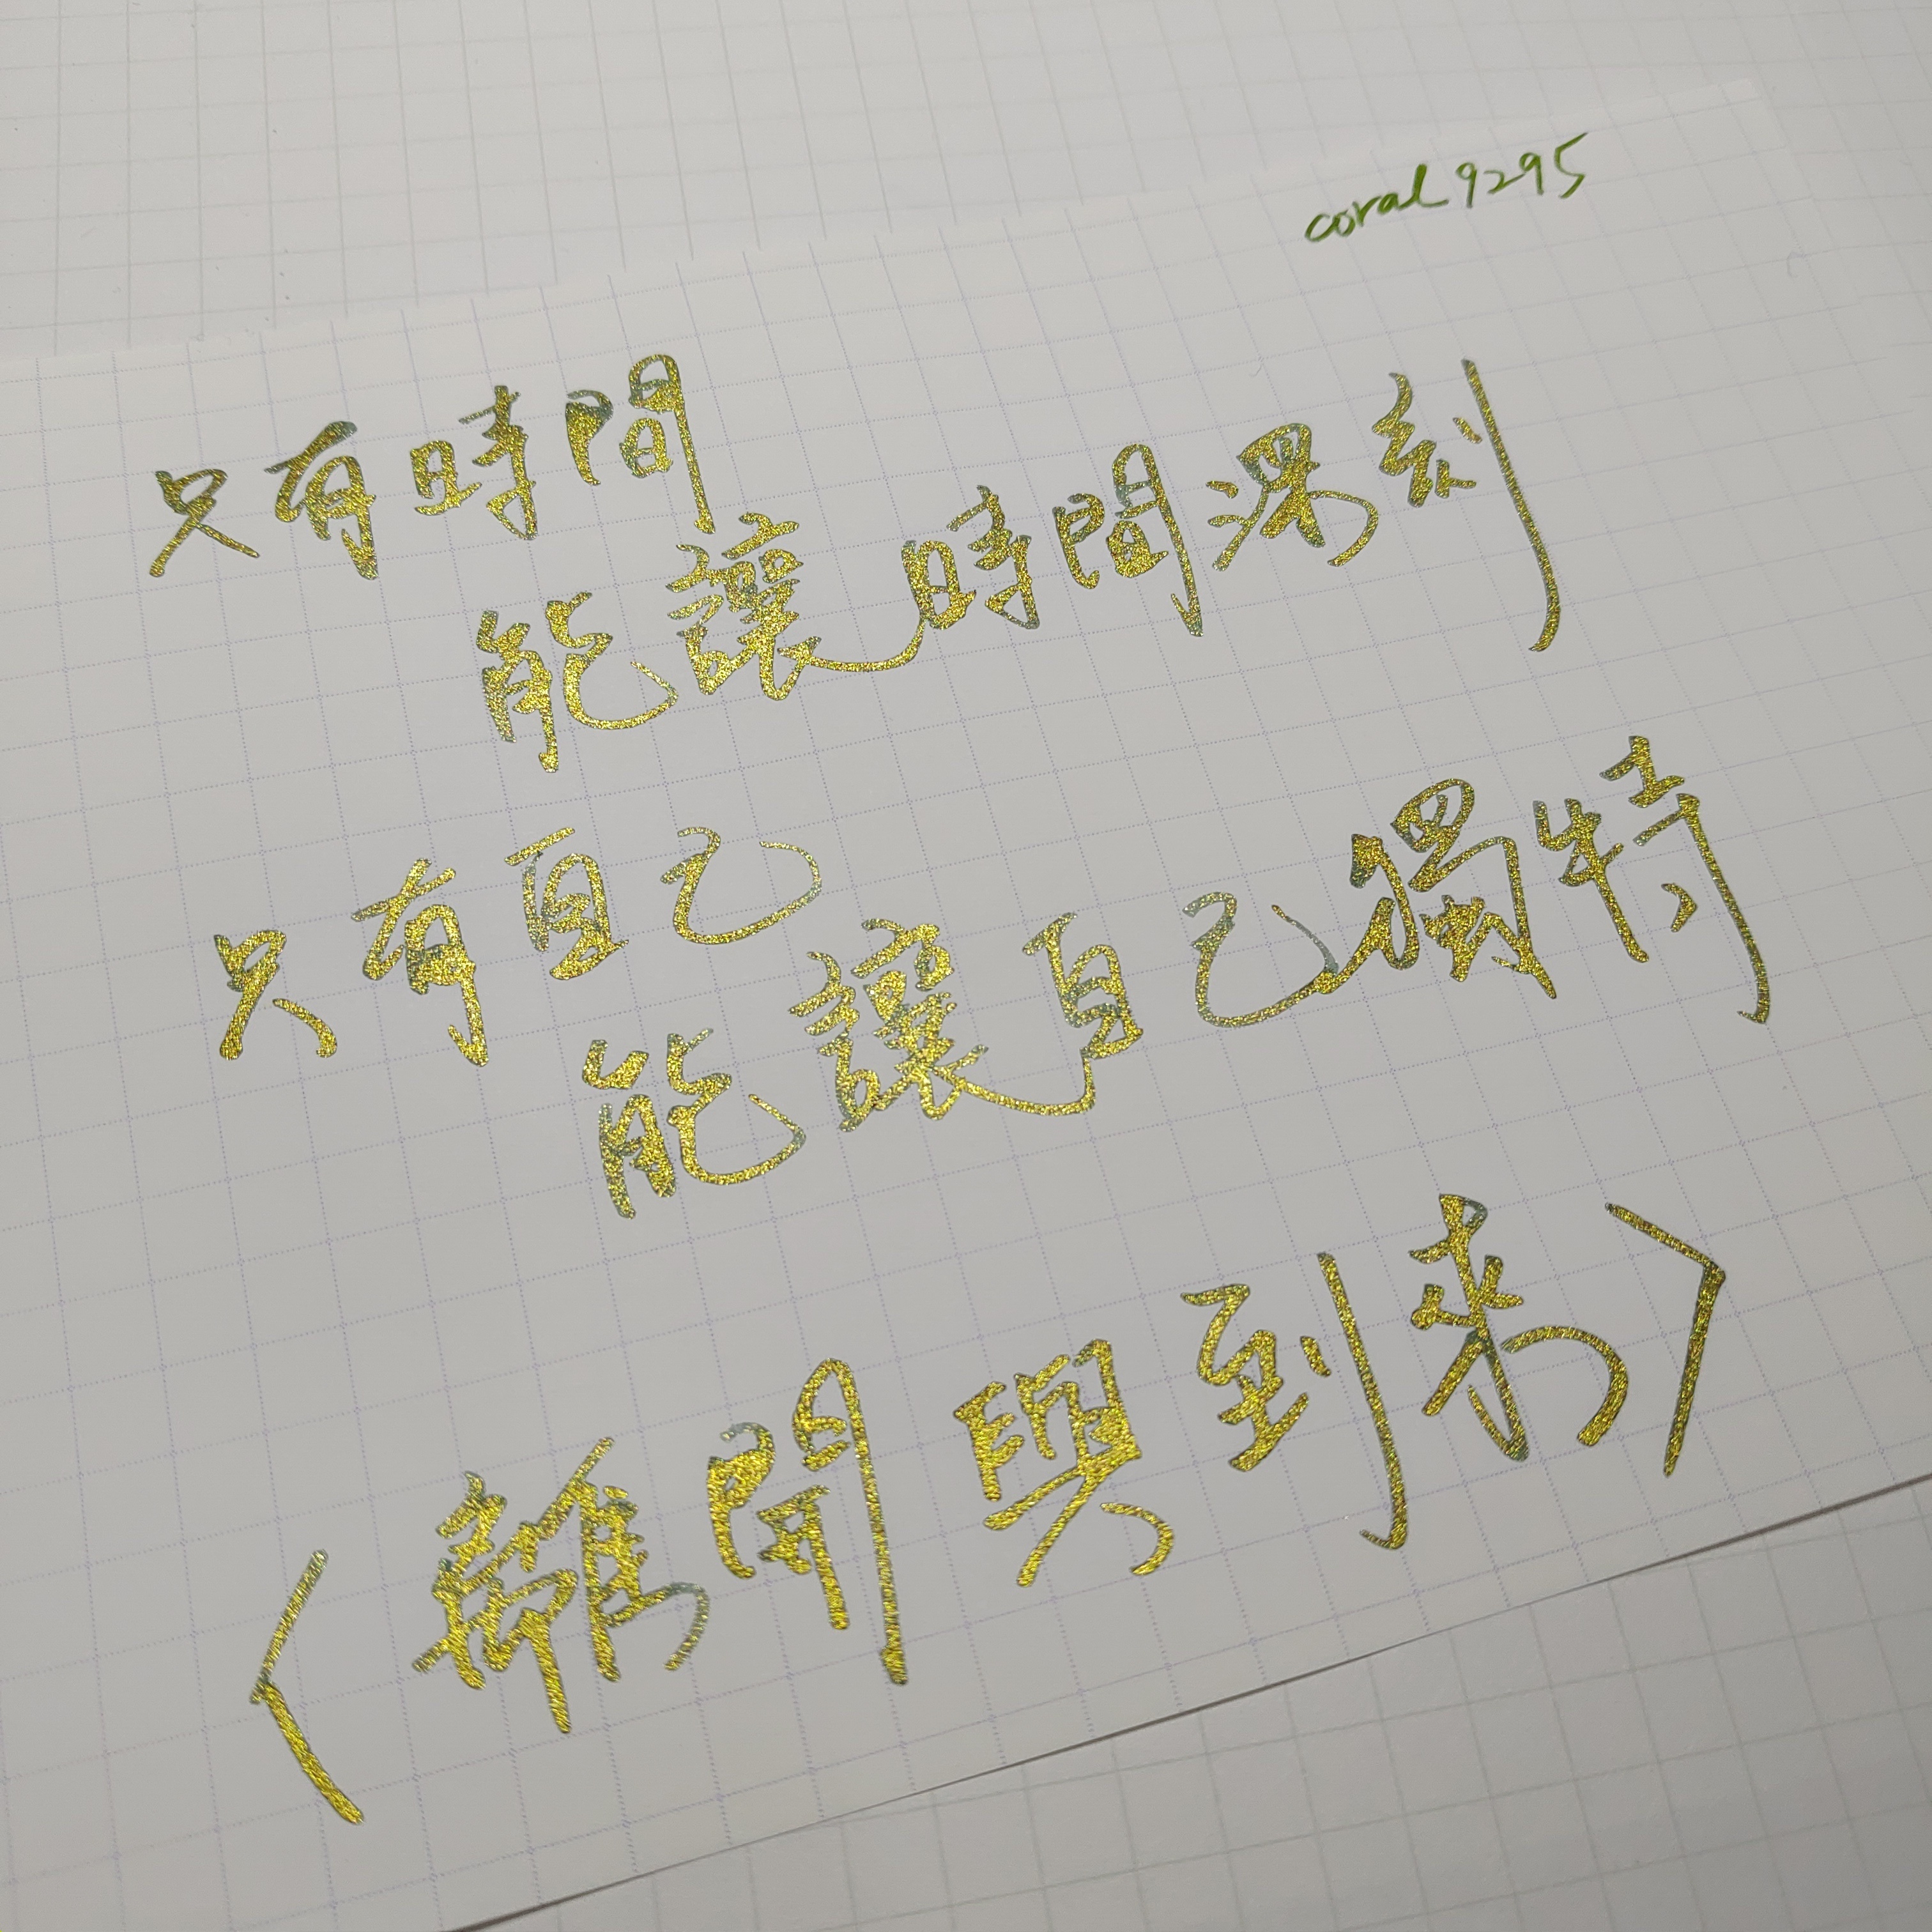 coral9295
只有時間
能讓時間深刻
只有自己
能讓自己獨特
〈離開與到來〉